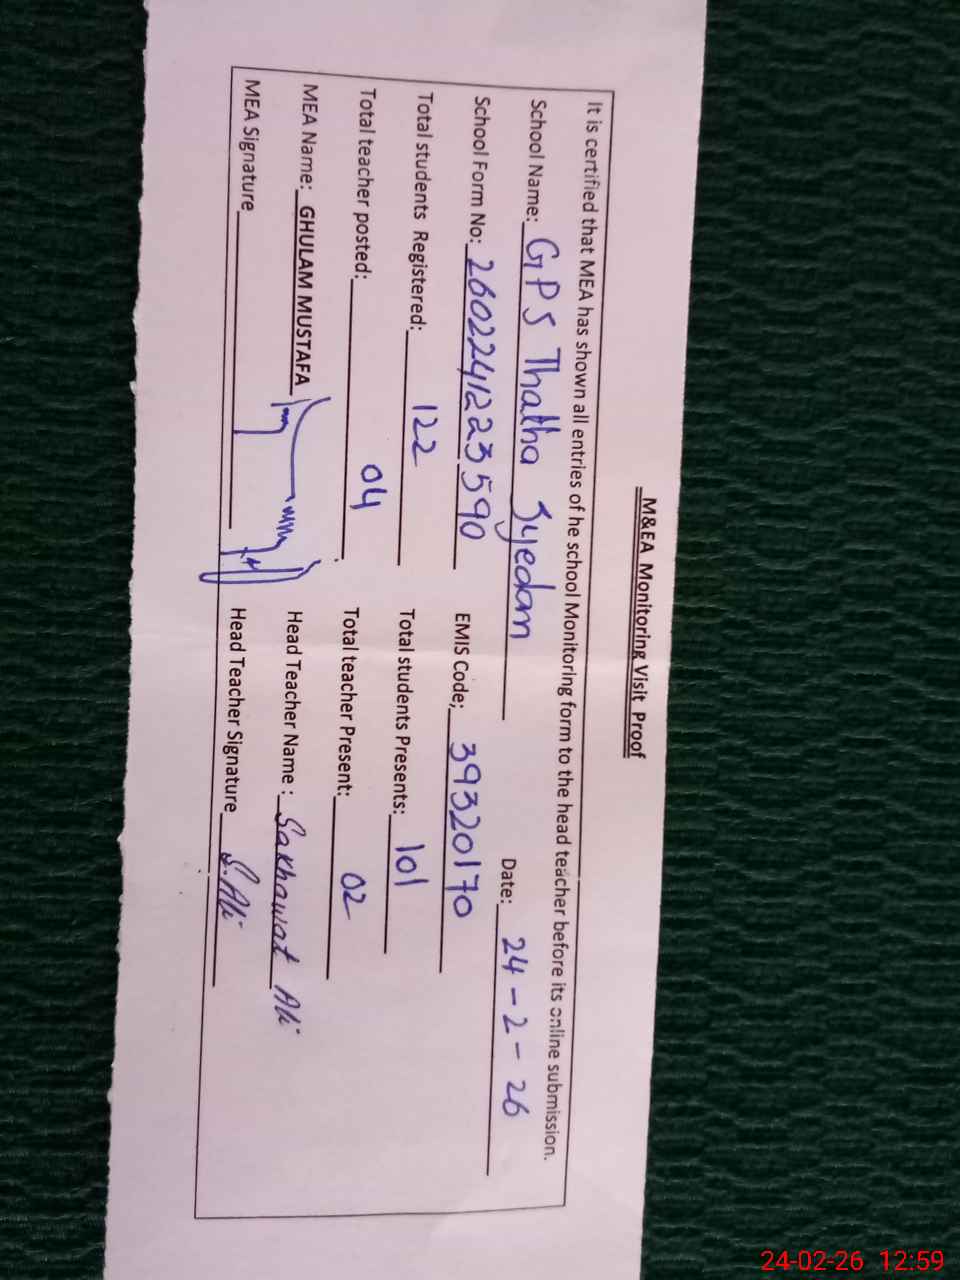 M&EA Monitoring Visit Proof
It is certified that MEA has shown all entries of he school Monitoring form to the head teacher before its online submission.
School Name: GPS Thatha Syedan Date: 24-2-26
School Form No: 2602241223590 EMIS Code; 39320170
Total students Registered: 122 Total students Presents: 101
Total teacher posted: 04 Total teacher Present: 02
MEA Name: GHULAM MUSTAFA Head Teacher Name : Sakhawat Ali
MEA Signature Head Teacher Signature S.Ali
24-02-26 12:59